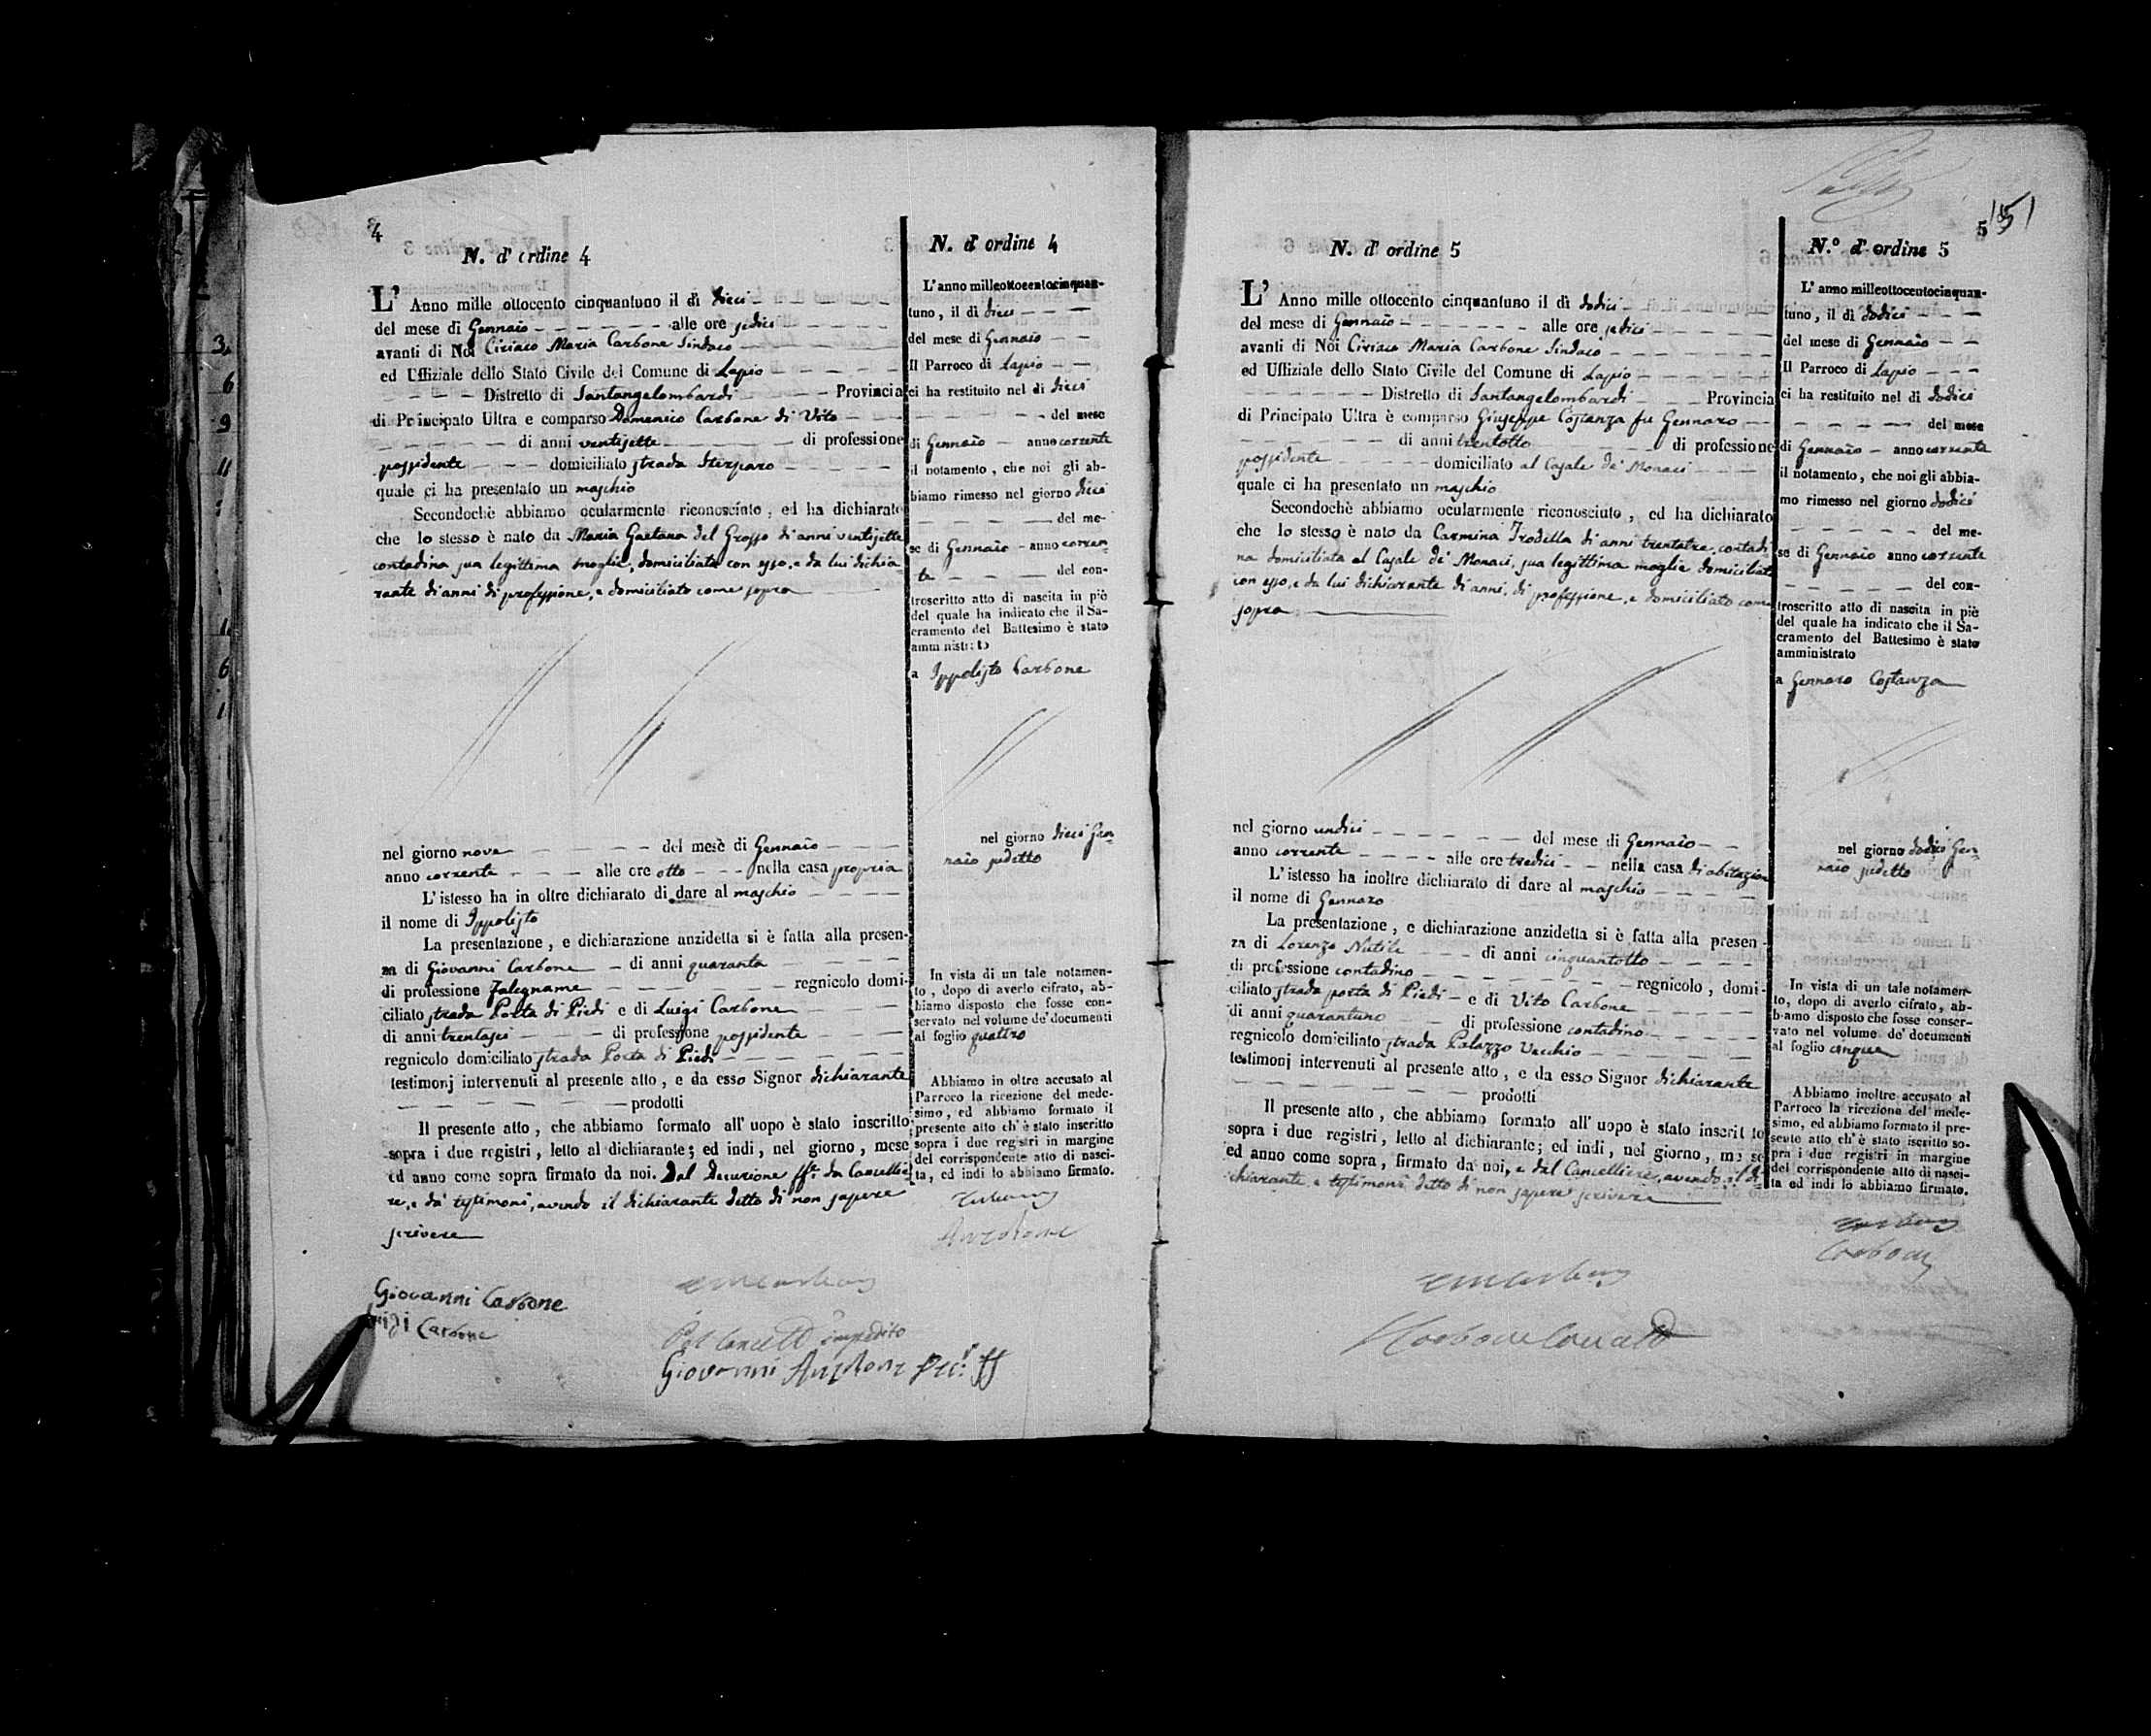 4
N. d' ordine 4
L' Anno mille ottocento cinquantuno il dì dieci
del mese di Gennaio alle ore sedici
avanti di Noi Ciriaco Maria Carbone Sindaco
ed Uffiziale dello Stato Civile del Comune di Lapio
Distretto di Santangelombardi Provincia
di Principato Ultra e comparso Domenico Carbone di Vito
di anni ventisette di professione
possidente domiciliato strada Sterparo
quale ci ha presentato un maschio
Secondochè abbiamo ocularmente riconosciuto, ed ha dichiarato
che lo stesso è nato da Maria Gaetana del Grosso di anni ventisette
contadina sua legittima moglie, domiciliata con esso, e da lui dichia
rante di anni di professione, e domiciliato come sopra
nel giorno nove del mese di Gennaio
anno corrente alle ore otto nella casa propria
L' istesso ha in oltre dichiarato di dare al maschio
il nome di Ippolisto
La presentazione, e dichiarazione anzidetta si è fatta alla presen-
za di Giovanni Carbone di anni quaranta
di professione Falegname regnicolo domi-
ciliato strada Porta di Piedi e di Luigi Carbone
di anni trentasei di professione possidente
regnicolo domiciliato strada Porta di Piedi
testimonj intervenuti al presente atto, e da esso Signor dichiarante
prodotti
Il presente atto, che abbiamo formato all' uopo è stato inscritto
sopra i due registri, letto al dichiarante; ed indi, nel giorno, mese
ed anno come sopra firmato da noi. Dal Decurione ff. da Cancellie
re, e da' testimoni, avendo il dichiarante detto di non sapere
scrivere
Giovanni Carbone
Luigi Carbone
Pel Cancell. impedito
Giovanni Dec. ff
N. d' ordine 4
L' anno milleottocentocinquan-
tuno, il dì dieci
del mese di Gennaio
Il Parroco di Lapio
ci ha restituito nel dì dieci
del mese
di Gennaio anno corrente
il notamento, che noi gli ab-
biamo rimesso nel giorno dieci
del me-
se di Gennaio anno corren-
te del con-
troscritto atto di nascita in piè
del quale ha indicato che il Sa-
cramento del Battesimo è stato
amministrato
a Ippolisto Carbone
nel giorno dieci Gen
naio sudetto
In vista di un tale notamen-
to, dopo di averlo cifrato, ab-
biamo disposto che fosse con-
servato nel volume de' documenti
al foglio quattro
Abbiamo in oltre accusato al
Parroco la ricezione del mede-
simo, ed abbiamo formato il
presente atto ch' è stato inscritto
sopra i due registri in margine
del corrispondente atto di nasci-
ta, ed indi lo abbiamo firmato.
5
N. d' ordine 5
L' Anno mille ottocento cinquantuno il dì dodici
del mese di Gennaio alle ore sedici
avanti di Noi Ciriaco Maria Carbone Sindaco
ed Uffiziale dello Stato Civile del Comune di Lapio
Distretto di Santangelombardi Provincia
di Principato Ultra è comparso Giuseppe Costanza fu Gennaro
di anni trentotto di professione
possidente domiciliato al Casale de' Monaci
quale ci ha presentato un maschio
Secondochè abbiamo ocularmente riconosciuto, ed ha dichiarato
che lo stesso è nato da Carmina Trodella di anni trentatre, contadi
na domiciliata al Casale de' Monaci, sua legittima moglie domiciliata
con esso, e da lui dichiarante di anni, di professione, e domiciliato come
sopra
nel giorno undici del mese di Gennaio
anno corrente alle ore tredici nella casa di abitazione
L' istesso ha inoltre dichiarato di dare al maschio
il nome di Gennaro
La presentazione, e dichiarazione anzidetta si è fatta alla presen-
za di Lorenzo Nutile di anni cinquantotto
di professione contadino regnicolo, domi-
ciliato strada porta di Piedi e di Vito Carbone
di anni quarantuno di professione contadino
regnicolo domiciliato strada Palazzo Vecchio
testimonj intervenuti al presente atto, e da esso Signor dichiarante
prodotti
Il presente atto, che abbiamo formato all' uopo è stato inscritto
sopra i due registri, letto al dichiarante; ed indi, nel giorno, mese
ed anno come sopra, firmato da noi, e dal Cancelliere, avendo il di-
chiarante e testimoni detto di non sapere scrivere
N.º d' ordine 5
L' anno milleottocentocinquan-
tuno, il dì dodici
del mese di Gennaio
Il Parroco di Lapio
ci ha restituito nel dì dodici
del mese
di Gennaio anno corrente
il notamento, che noi gli abbia-
mo rimesso nel giorno dodici
del me-
se di Gennaio anno corrente
del con-
troscritto atto di nascita in piè
del quale ha indicato che il Sa-
cramento del Battesimo è stato
amministrato
a Gennaro Costanza
nel giorno dodici Gen
naio sudetto
In vista di un tale notamen-
to, dopo di averlo cifrato, ab-
biamo disposto che fosse conser-
vato nel volume de' documenti
al foglio cinque
Abbiamo inoltre accusato al
Parroco la ricezione del mede-
simo, ed abbiamo formato il pre-
sente atto ch' è stato iscritto so-
pra i due registri in margine
del corrispondente atto di nasci-
ta ed indi lo abbiamo firmato.